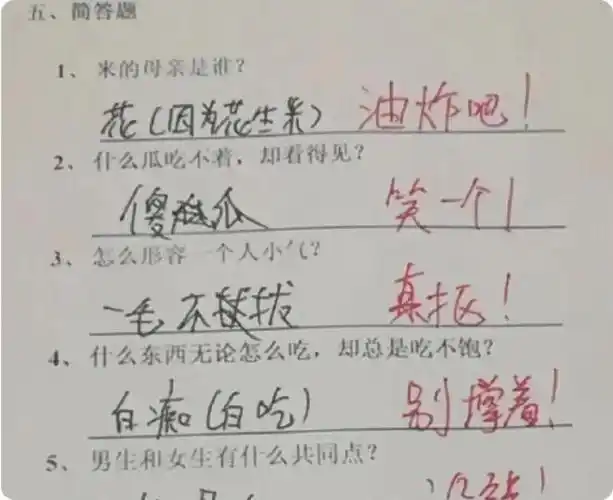 五、简答题
1、米的母亲是谁？
花（因为花生米） 油炸吧！
2、什么瓜吃不着，却看得见？
傻瓜 笑一个！
3、怎么形容一个人小气？
一毛不拔 真抠！
4、什么东西无论怎么吃，却总是吃不饱？
白痴（白吃） 别撑着！
5、男生和女生有什么共同点？